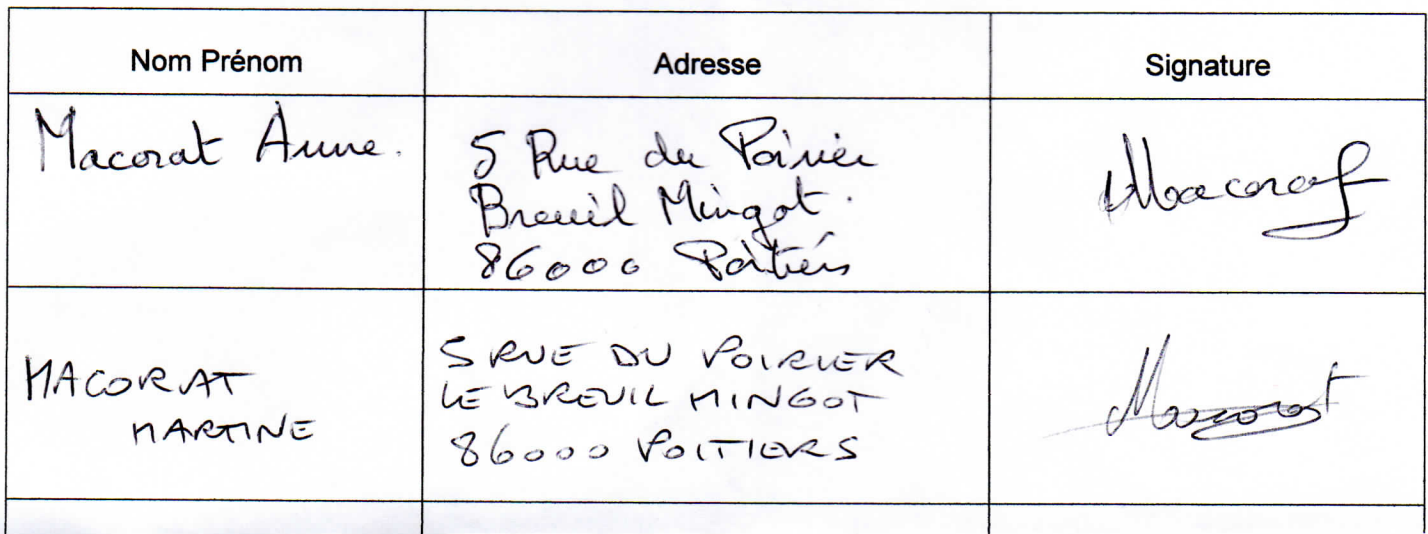 Nom Prénom
Adresse
Signature
Macorat Anne.
5 Rue du Poirier
Breuil Mingot.
86000 Poitiers
Macorat
MACORAT
MARTINE
5 RUE DU POIRIER
LE BREUIL MINGOT
86000 POITIERS
Macorat